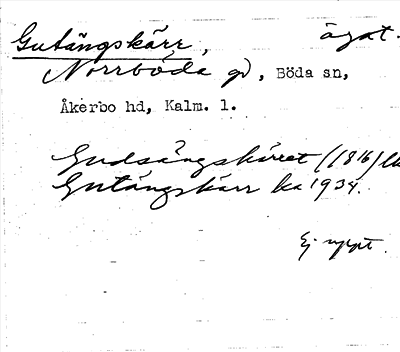 Gutängskärr, ägat.
Norrböda gd, Böda sn,
Åkerbo hd, Kalm. l.
Gudsängskäret (1816)
Gutängskärr ka 1934.
Ej uppt.